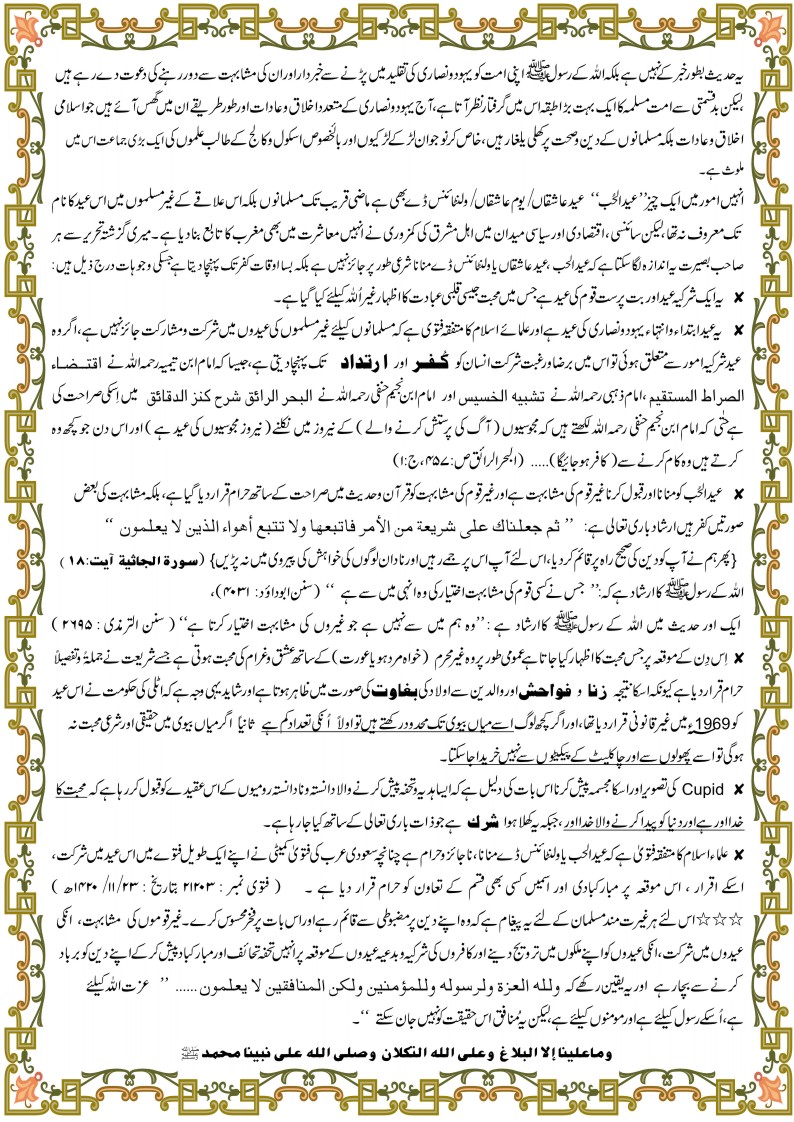 یہ حدیث بطور خبر کے نہیں ہے بلکہ اللہ کے رسول ﷺ اپنی امت کو یہود و نصاری کی تقلید میں پڑنے سے خبردار اور ان کی مشابہت سے دور رہنے کی دعوت دے رہے ہیں
،لیکن بدقسمتی سے امت مسلمہ کا ایک بہت بڑا طبقہ اس میں گرفتار نظر آتا ہے، آج یہود و نصاری کے متعدد اخلاق و عادات اور طور طریقے ان میں گھس آئے ہیں جو اسلامی
اخلاق و عادات بلکہ مسلمانوں کے دین و صحت پر کھلی یلغار ہیں، خاص کر نوجوان لڑکے لڑکیوں اور بالخصوص اسکول و کالج کے طالب علموں کی ایک بڑی جماعت اس میں
ملوث ہے۔
انہیں امور میں ایک چیز ’’عید الحُب‘‘ عید عاشقاں/ یوم عاشقاں/ ولنٹائنس ڈے بھی ہے ماضی قریب تک مسلمانوں بلکہ اس علاقے کے غیر مسلموں میں اس عید کا نام
تک معروف نہ تھا، لیکن سائنسی، اقتصادی اور سیاسی میدان میں اہل مشرق کی کمزوری نے انہیں معاشرت میں بھی مغرب کا تابع بنا دیا ہے۔ میری گزشتہ تحریر سے ہر
صاحب بصیرت یہ اندازہ لگا سکتا ہے کہ عید الحب، عید عاشقاں یا ولنٹائنس ڈے منانا شرعی طور پر جائز نہیں ہے بلکہ بسا اوقات کفر تک پہنچا دیتا ہے جسکی وجوہات درج ذیل ہیں:
✘ یہ ایک شرکیہ عید اور بت پرست قوم کی عید ہے جس میں محبت جیسی قلبی عبادت کا اظہار غیر اُللہ کیلئے کیا گیا ہے۔
✘ یہ عید ابتداء و انتہاء یہود و نصاری کی عید ہے اور علمائے اسلام کا متفقہ فتوی ہے کہ مسلمانوں کیلئے غیر مسلموں کی عیدوں میں شرکت و مشارکت جائز نہیں ہے، اگر وہ
عید شرکیہ امور سے متعلق ہوئی تو اس میں برضا و رغبت شرکت انسان کو کُفر اور ارتداد تک پہنچا دیتی ہے، جیسا کہ امام ابن تیمیہ رحمہ اللہ نے اقتضاء
الصراط المستقیم، امام ذہبی رحمہ اللہ نے تشبیہ الخسیس اور امام ابن نجیم حنفی رحمہ اللہ نے البحر الرائق شرح کنز الدقائق میں اِسکی صراحت کی
ہے حتٰی کہ امام ابن نجیم حنفی رحمہ اللہ لکھتے ہیں کہ مجوسیوں (آگ کی پرستش کرنے والے) کے نیروز میں نکلنے (نیروز مجوسیوں کی عید ہے) اور اس دن جو کچھ وہ
کرتے ہیں وہ کام کرنے سے (کافر ہو جائیگا)..... (البحر الرائق ص: ۴۵۷، ج:۱)
✘ عید الحُب کو منانا اور قبول کرنا غیر قوم کی مشابہت ہے اور غیر قوم کی مشابہت کو قرآن و حدیث میں صراحت کے ساتھ حرام قرار دیا گیا ہے، بلکہ مشابہت کی بعض
صورتیں کفر ہیں ارشاد باری تعالی ہے: ’’ ثم جعلناك على شريعة من الأمر فاتبعها ولا تتبع أهواء الذين لا يعلمون ‘‘
{پھر ہم نے آپ کو دین کی صحیح راہ پر قائم کر دیا، اس لئے آپ اس پر جمے رہیں اور نادان لوگوں کی خواہش کی پیروی میں نہ پڑیں} (سورة الجاثية آیت: ۱۸)
اللہ کے رسول ﷺ کا ارشاد ہے کہ: ’’ جس نے کسی قوم کی مشابہت اختیار کی وہ انہی میں سے ہے ‘‘ (سنن ابوداؤد: ۴۰۳۱)،
ایک اور حدیث میں اللہ کے رسول ﷺ کا ارشاد ہے: ’’وہ ہم میں سے نہیں ہے جو غیروں کی مشابہت اختیار کرتا ہے‘‘ (سنن الترمذی : ۲۶۹۵)
✘ اِس دِن کے موقعہ پر جس محبت کا اظہار کیا جاتا ہے عمومی طور پر وہ غیر محرم (خواہ مرد ہو یا عورت) کے ساتھ عشق و غرام کی محبت ہوتی ہے جسے شریعت نے جملۃً و تفصیلاً
حرام قرار دیا ہے کیونکہ اسکا نتیجہ زنا و فواحش اور والدین سے اولاد کی بغاوت کی صورت میں ظاہر ہوتا ہے اور شاید یہی وجہ ہے کہ اٹلی کی حکومت نے اس عید
کو 1969ء میں غیر قانونی قرار دیا تھا، اور اگر کچھ لوگ اسے میاں بیوی تک محدود رکھتے ہیں تو اولاً اُنکی تعداد کم ہے ثانیا اگر میاں بیوی میں حقیقی اور شرعی محبت نہ
ہوگی تو اسے پھولوں سے اور چاکلیٹ کے پیکٹوں سے نہیں خریدا جا سکتا۔
✘ Cupid کی تصویر اور اسکا مجسمہ پیش کرنا اس بات کی دلیل ہے کہ ایسا ہدیہ و تحفہ پیش کرنے والا دانستہ و نادانستہ رومیوں کے اس عقیدے کو قبول کر رہا ہے کہ محبت کا
خدا اور ہے اور دنیا کو پیدا کرنے والا خدا اور، جبکہ یہ کھلا ہوا شرك ہے جو ذات باری تعالی کے ساتھ کیا جا رہا ہے۔
✘ علماء اسلام کا متفقہ فتویٰ ہے کہ عید الحب یا ولنٹائنس ڈے منانا، ناجائز و حرام ہے چنانچہ سعودی عرب کی فتویٰ کمیٹی نے اپنے ایک طویل فتوے میں اس عید میں شرکت،
اسکے اقرار ، اس موقعہ پر مبارکبادی اور اسمیں کسی بھی قسم کے تعاون کو حرام قرار دیا ہے ۔ (فتوی نمبر : ۲۱۲۰۳ بتاریخ : ۲۳/ ۱۱/ ۱۴۲۰ھ)
☆☆☆ اس لئے ہر غیرت مند مسلمان کے لئے یہ پیغام ہے کہ وہ اپنے دین پر مضبوطی سے قائم رہے اور اس بات پر فخر محسوس کرے۔ غیر قوموں کی مشابہت، انکی
عیدوں میں شرکت، انکی عیدوں کو اپنے ملکوں میں ترویج دینے اور کافروں کی شرکیہ و بدعیہ عیدوں کے موقعہ پر انہیں تحفہ تحائف اور مبارکباد پیش کر کے اپنے دین کو برباد
کرنے سے بچا رہے اور یہ یقین رکھے کہ ولله العزة ولرسوله وللمؤمنين ولكن المنافقين لا يعلمون...... ‘‘ عزت اللہ کیلئے
ہے، اُسکے رسول کیلئے ہے اور مومنوں کیلئے ہے، لیکن یہ مُنافق اس حقیقت کو نہیں جان سکتے ‘‘۔
وماعلينا إلا البلاغ وعلى الله التكلان وصلى الله على نبينا محمد ﷺ